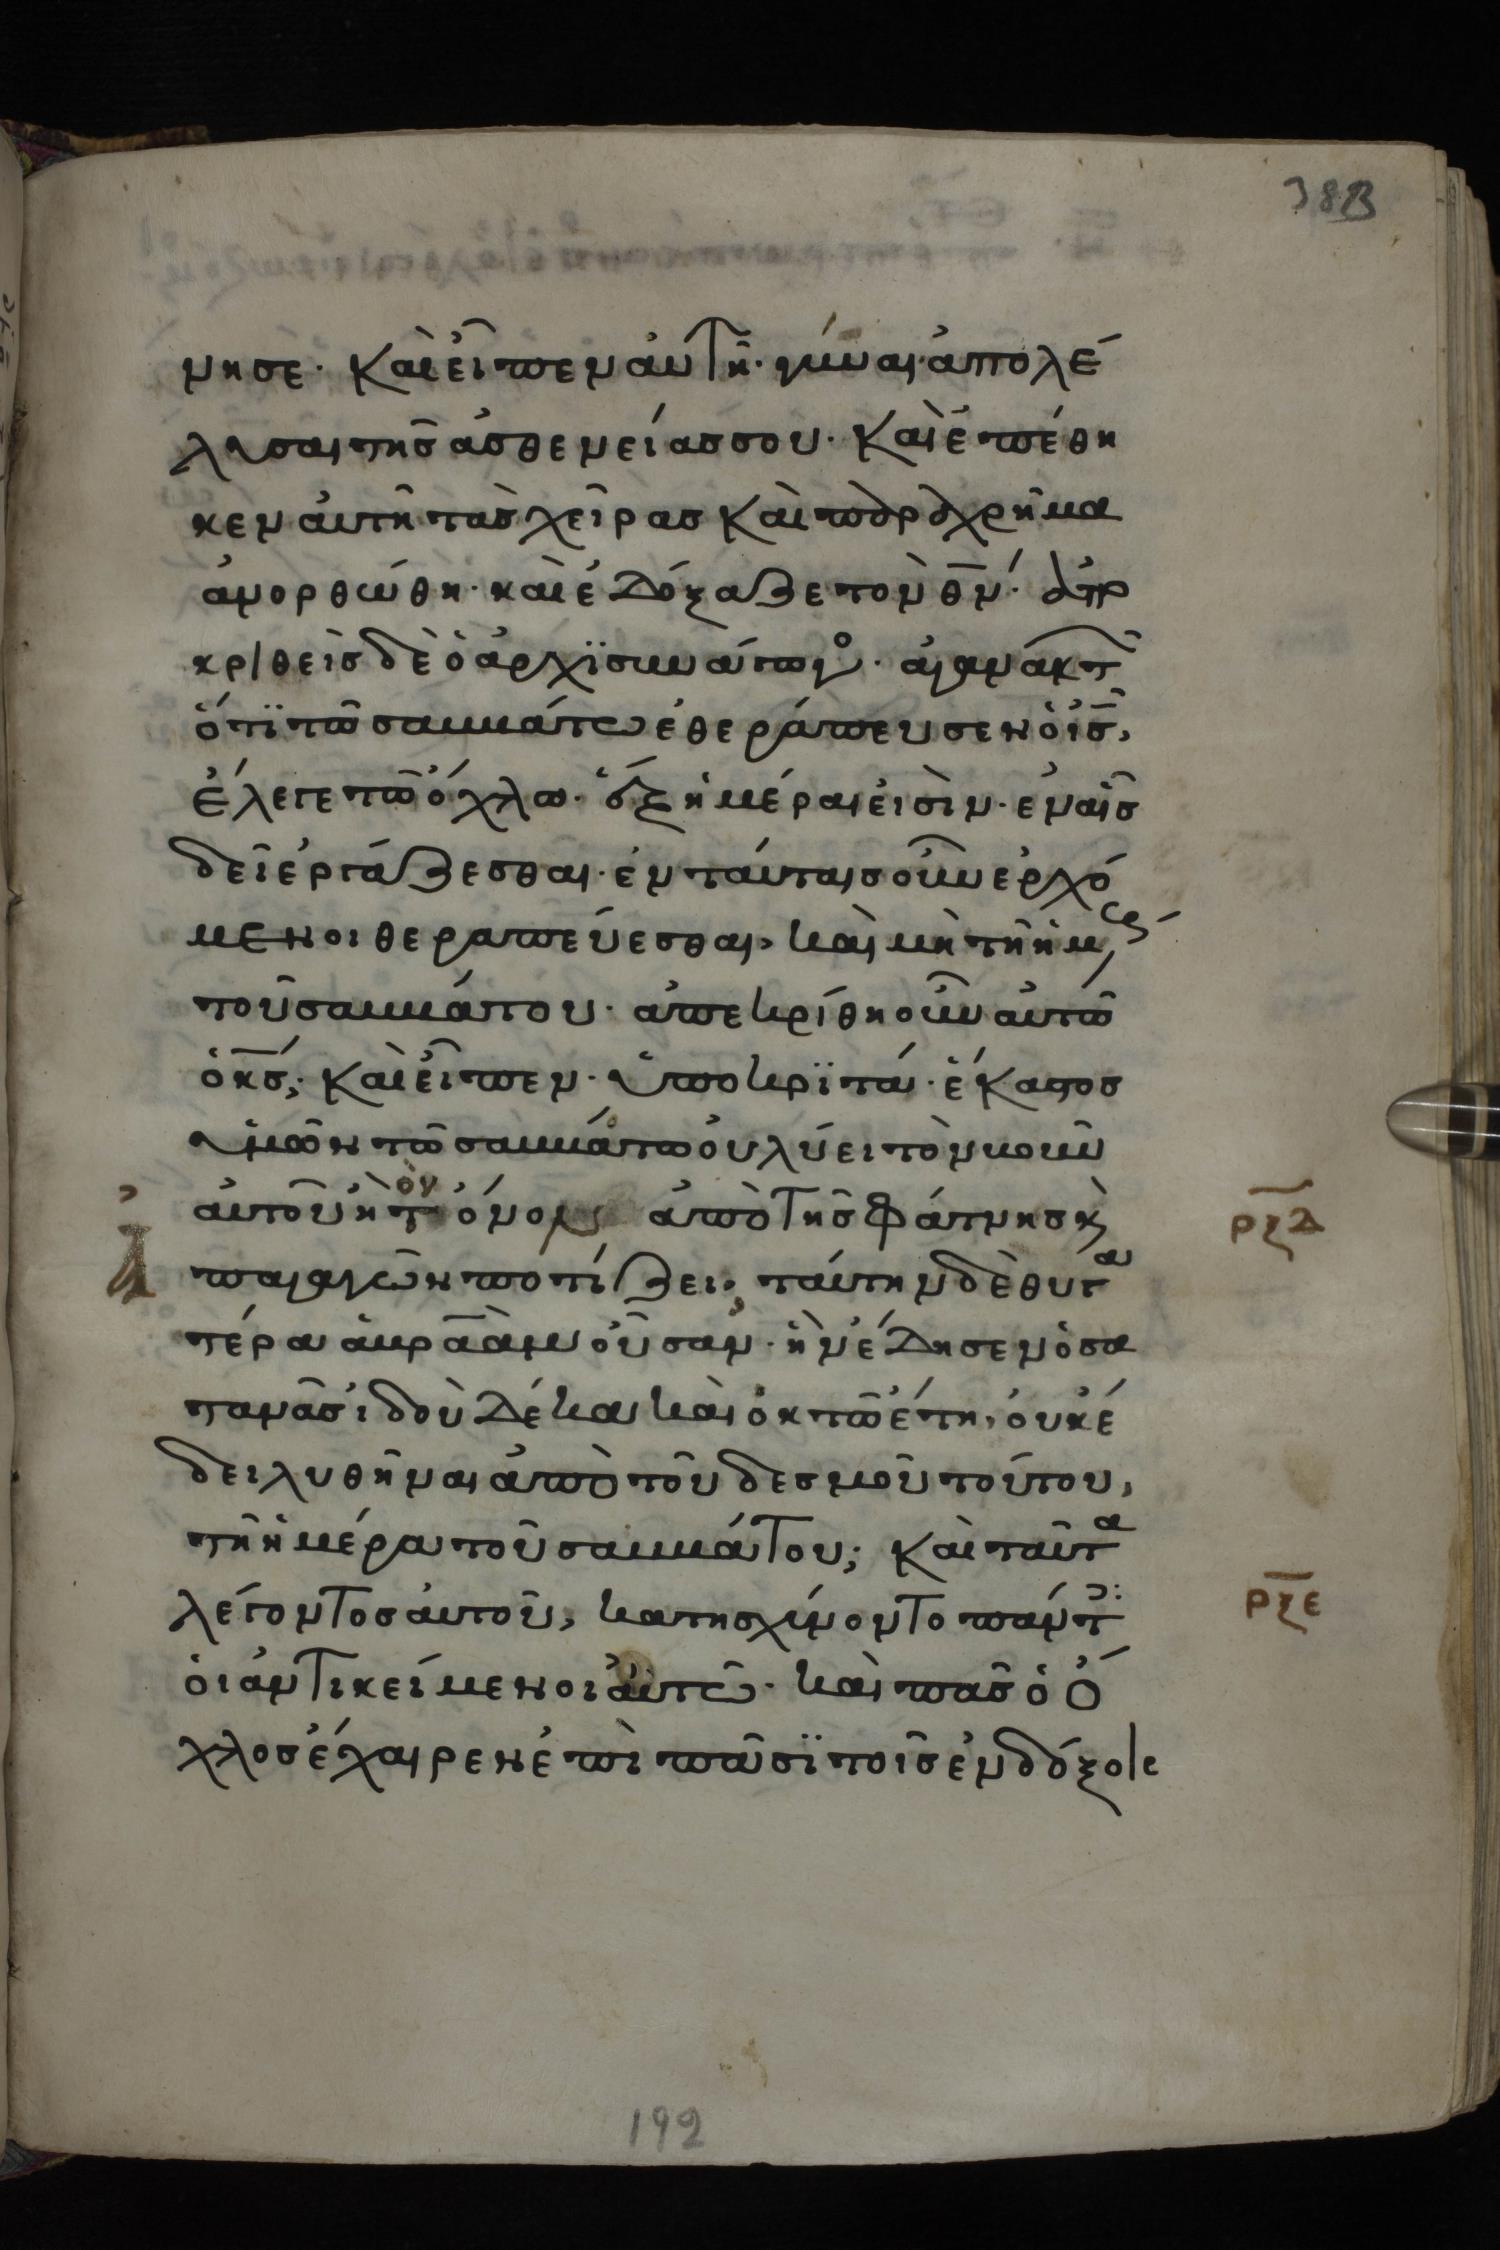 383
νησε· καὶ εἶπεν αὐτῆ· γύναι ἀπολέ
λυσαι τῆς ἀσθενείας σου· καὶ ἐπέθη
κεν αὐτῆ τὰς χεῖρας καὶ παραχρῆμα
ἀνορθώθη· καὶ ἐδόξαζε τὸν θν· ἀπο
κριθεὶς δὲ ὁ ἀρχϊσυνάγωγο· ἀγανακτ
ὅτϊ τῶ σαββάτω ἐθεράπευσεν ὁ ις,
ἔλεγε τῶ ὄχλω· ἓξ ἡμέραι εἰσὶν· ἐν αἷς
δεῖ ἐργάζεσθαι· ἐν ταύταις οὖν ἐρχό
μενοι θεραπεύεσθαι, καὶ μὴ τῆ ἡμέρα
τοῦ σαββάτου· ἀπεκρίθη οὖν αὐτῶ
ὁ κς, καὶ εἶπεν· ὑποκρϊταί· ἕκαστος
ὑμῶν τῶ σαββάτω οὐ λύει τὸν βοῦν
αὐτοῦ ἢ τὸν ὄνον ἀπὸ τῆς φάτνης κ
ρξδ
ἀπαγαγὼν ποτίζει, ταύτην δὲ θυγα
τέρα ἀβραὰμ οὖσαν· ἣν ἔδησεν ὁ σα
τανᾶς ἰδοὺ δέκα καὶ ὀκτῶ ἔτη, οὐκ ἔ
δει λυθῆναι ἀπὸ τοῦ δεσμοῦ τούτου,
τῆ ἡμέρα τοῦ σαββάτου; καὶ ταῦτα
λέγοντος αὐτοῦ, κατησχύνοντο πάντ
ρξε
οἱ ἀντικείμενοι αὐτῶ· καὶ πᾶς ὁ ὄ
χλος ἔχαιρεν ἐπὶ πᾶσϊ τοῖς ἐνδόξοις
192